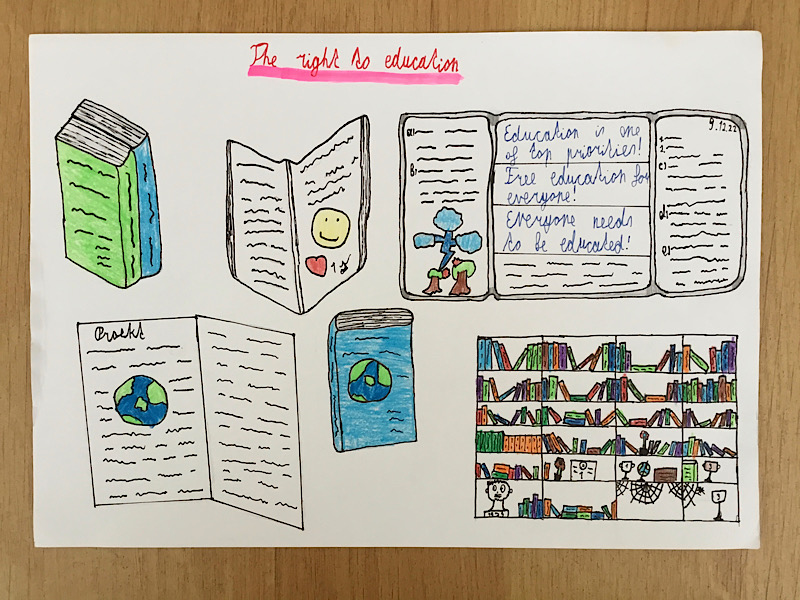 The right to education
1
a)
B)
Education is one
of top priorities!
Free education for
everyone!
Everyone needs
to be educated!
9.12.22
1.
2.
c)
d)
e)
Proekt
1
3